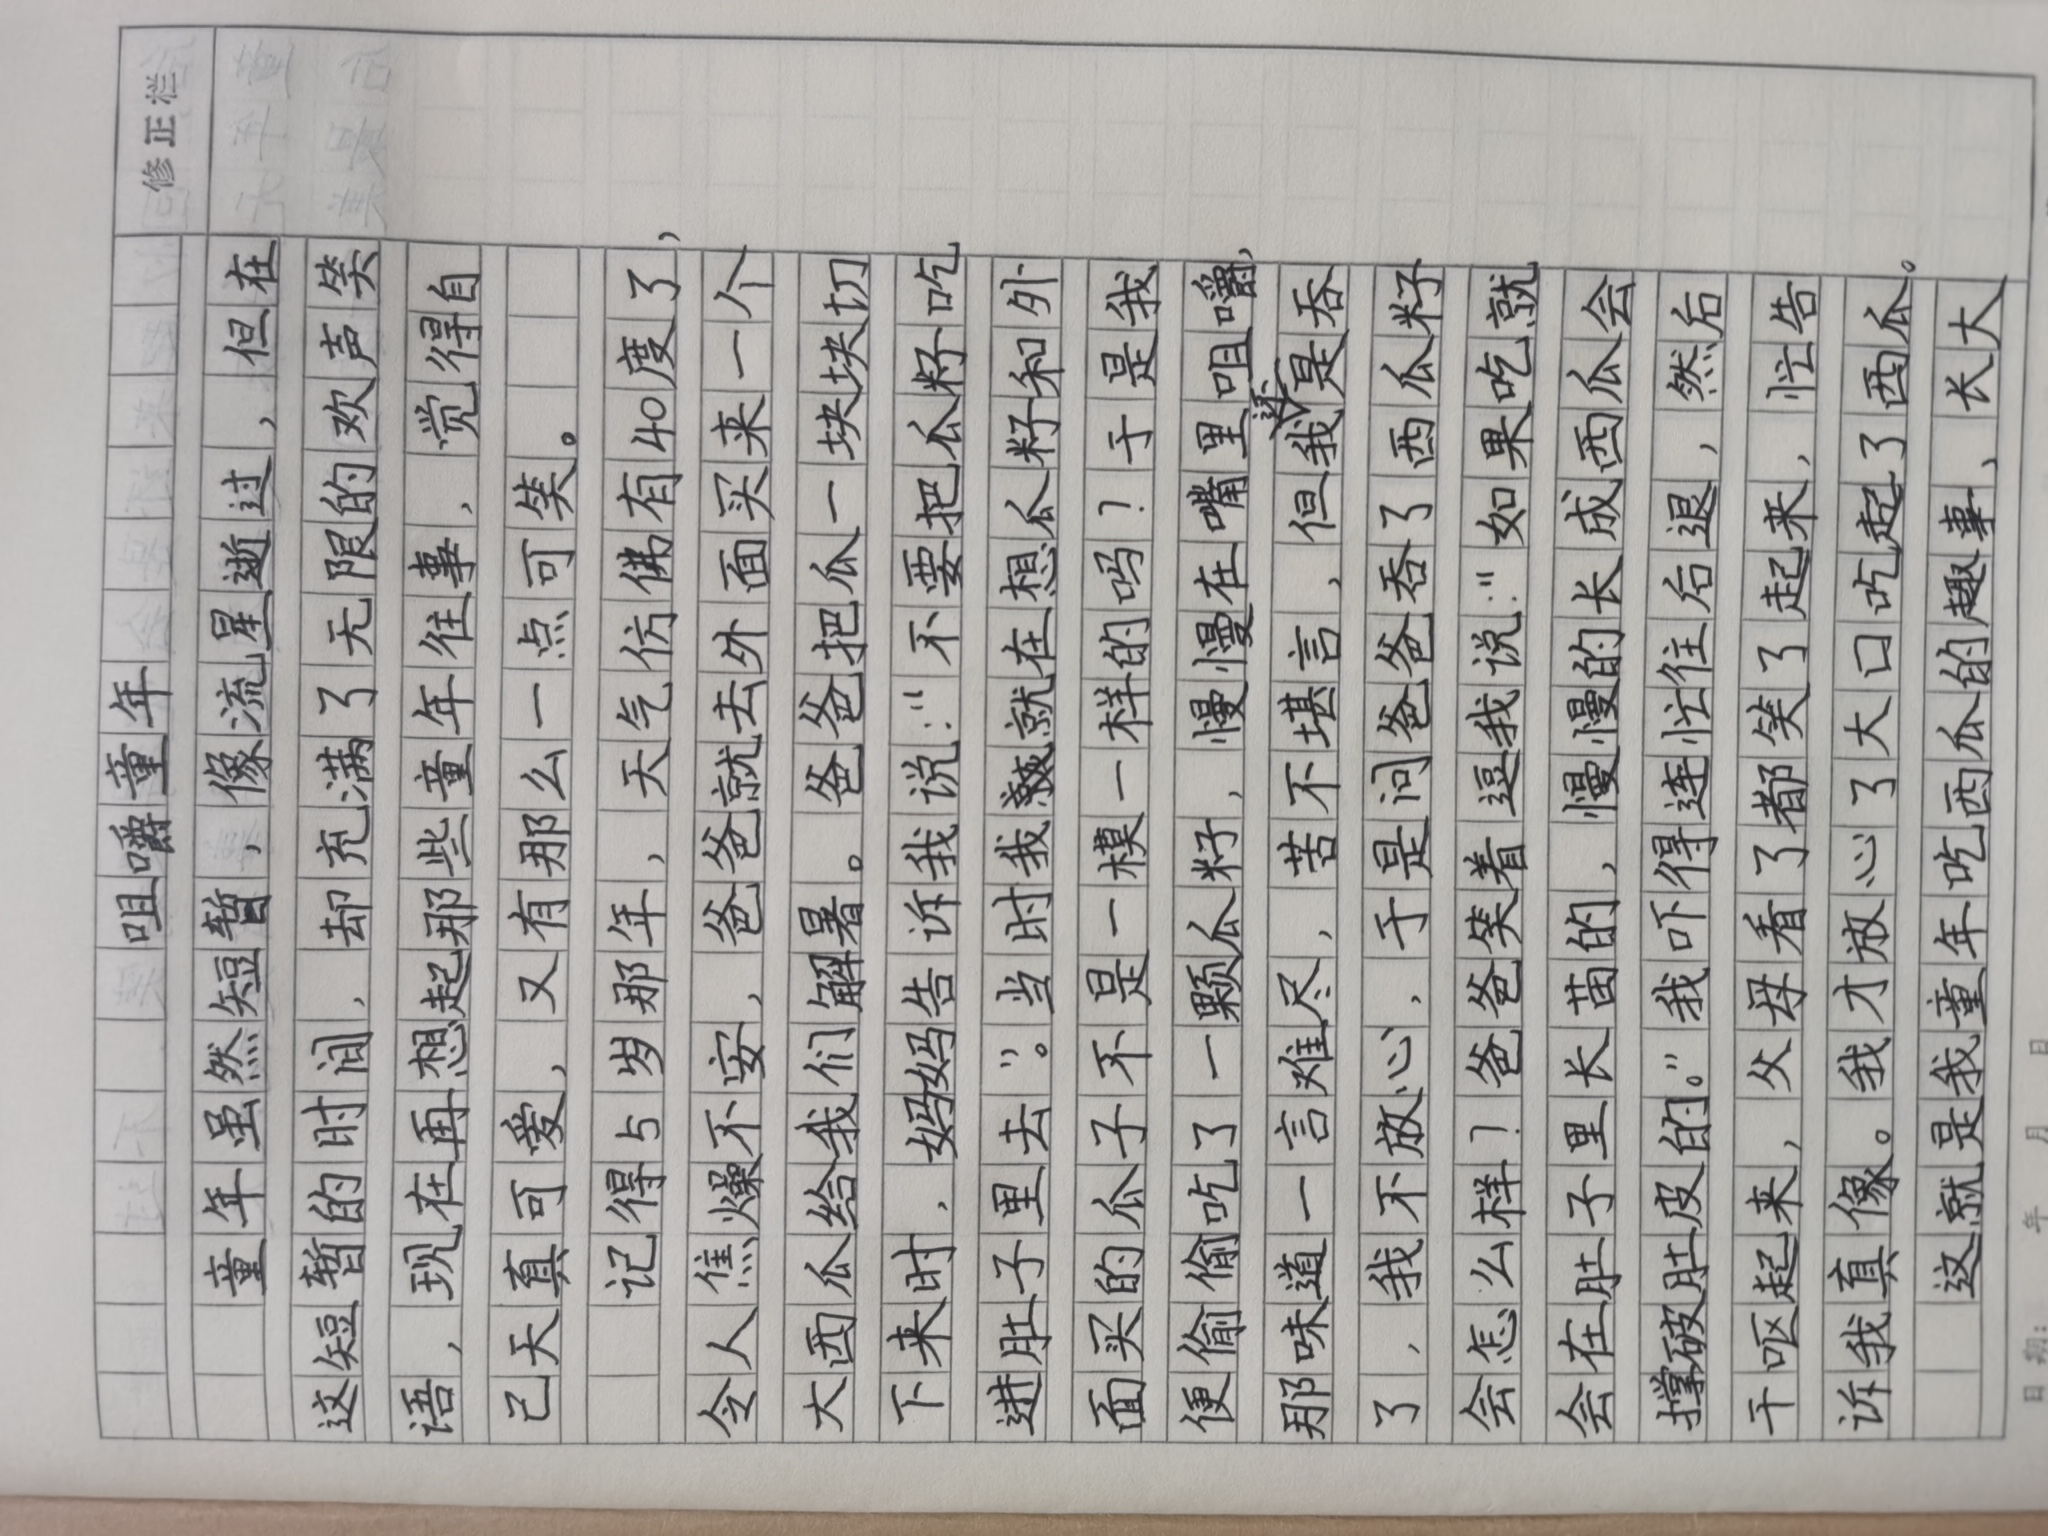 修正栏
咀嚼童年
童年虽然短暂，像流星逝过，但在
这短暂的时间，却充满了无限的欢声笑
语，现在再想起那些童年往事，觉得自
己天真可爱，又有那么一点可笑。
记得5岁那年，天气仿佛有40度了，
令人焦燥不安，爸爸就去外面买来一个
大西瓜给我们解暑。爸爸把瓜一块块切
下来时，妈妈告诉我说："不要把瓜籽吃
进肚子里去"。当时我就在想瓜籽和外
面买的瓜子不是一模一样的吗？于是我
便偷偷吃了一颗瓜籽，慢慢在嘴里咀嚼，
那味道一言难尽，苦不堪言，但我还是吞
了，我不放心，于是问爸爸吞了西瓜籽
会怎么样？爸爸笑着逗我说："如果吃就
会在肚子里长苗的，慢慢的长成西瓜会
撑破肚皮的。"我吓得连忙往后退，然后
干呕起来，父母看了都笑了起来，忙告
诉我真像。我才放心了大口吃起了西瓜。
这就是我童年吃西瓜的趣事，长大
日期： 年 月 日